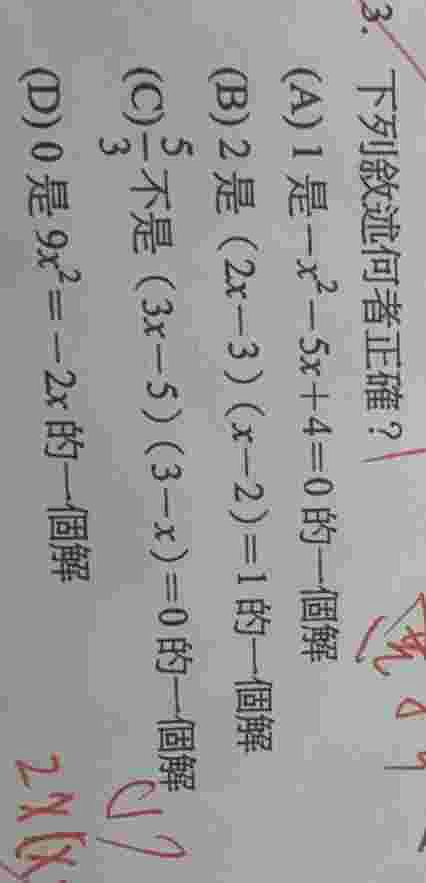 3. 下列敘述何者正確?
(A) 1 是 -x²-5x+4=0 的一個解
(B) 2 是 (2x-3)(x-2)=1 的一個解
(C) 5/3 不是 (3x-5)(3-x)=0 的一個解
(D) 0 是 9x²=-2x 的一個解